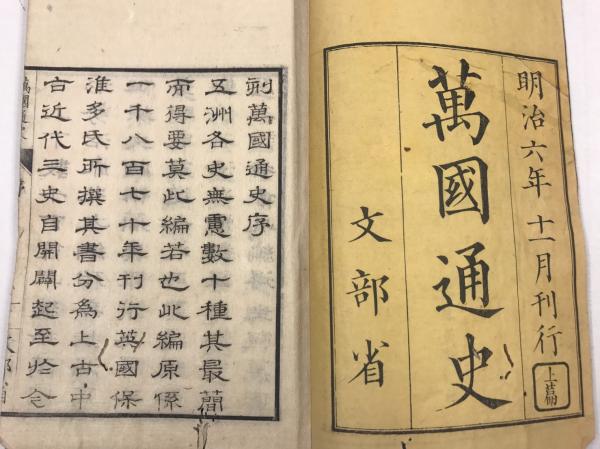 明治六年十一月刊行
上篇
萬國通史
文部省
刻萬國通史序
五洲各史無慮數十種其最簡
而得要莫此編若也此編原係
一千八百七十年刊行英國保
淮多氏所撰其書分為上古中
古近代三史自開闢起至於今
萬國通史
序
文部省